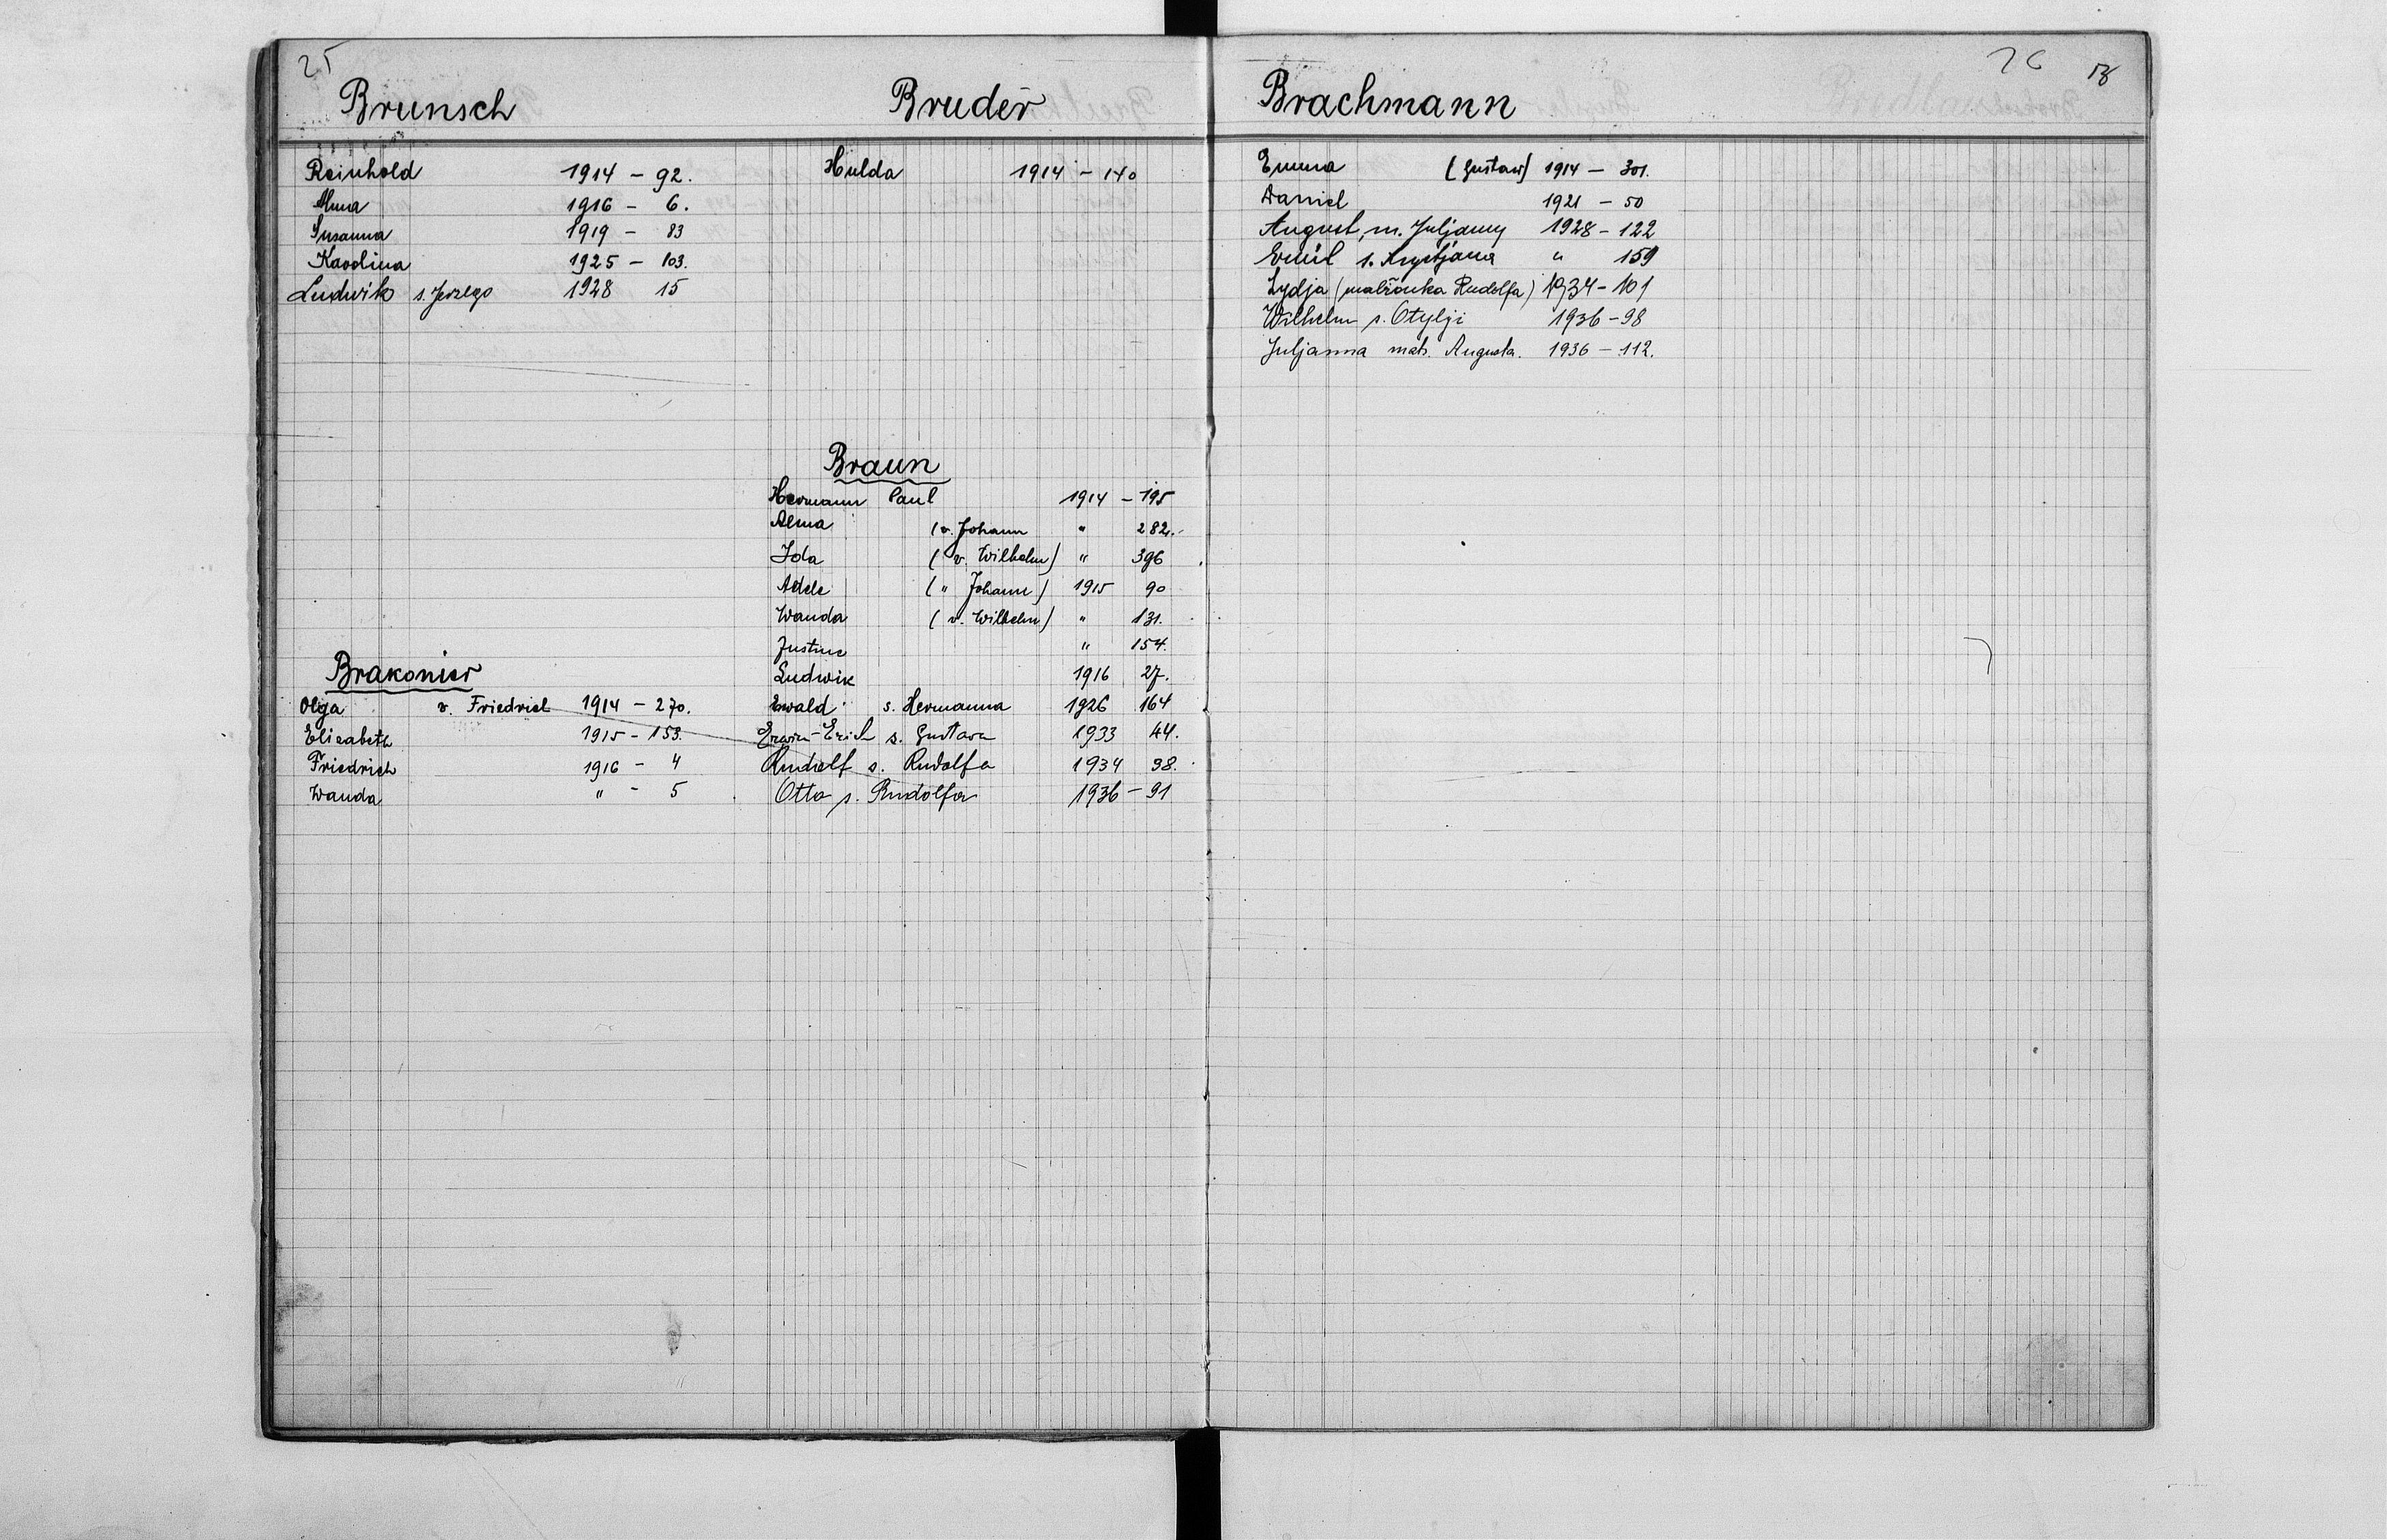 25
Brunsch
Reinhold 1914 - 92.
Alma 1916 - 6.
Susanna 1919 - 83
Karolina 1925 - 103.
Ludwik s. Jerzego 1928 15
Brakonier
Olga v. Friedrich 1914 - 270.
Elisabeth 1915 - 153.
Friedrich 1916 - 4
Wanda " - 5
Bruder
Hulda 1914 - 140
Braun
Hermann Paul 1914 - 195
Alma (v. Johann " 282.
Ida (v. Wilhelm) " 396
Adele (" Johann) 1915 90
Wanda (v. Wilhelm) " 131.
Justine " 154.
Ludwik 1916 27.
Ewald s. Hermanna 1926 164
Erwin-Erich s. Gustava 1933 44.
Rudolf s. Rudolfa 1934 98.
Otto s. Rudolfa 1936 - 91
26
Brachmann
Emma (Gustaw) 1914 - 301.
Daniel 1921 - 50
August, m. Juljanny 1928 - 122
Emil s. Krystjana " 159
Lydja (małżonka Rudolfa) 1934 - 101
Wilhelm s. Otylji 1936 - 98
Juljanna mał. Augusta. 1936 - 112.